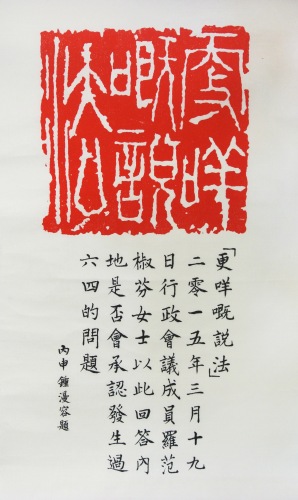 更咩
嘅說
法
「更咩嘅説法」
二零一五年三月十九
日行政會議成員羅范
椒芬女士以此回答內
地是否會承認發生過
六四的問題
丙申鍾漫容題